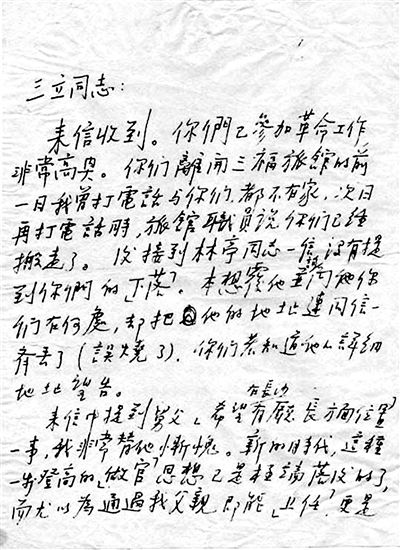 三立同志：
来信收到。你們已參加革命工作
非常高兴。你们離開三福旅館的前
一日我曾打電話与你们，都不在家，次日
再打電話時，旅館職員說你们已經
搬走了。後接到林亭同志一信没有提
到你們的「下落」。本想覆他並詢问他你
们在何處，却把他的地址連同信一
齊丢了（誤燒了）。你们若知道他的詳細
地址望告。
来信中提到舅父「希望在長沙有廳長方面位置」
一事，我非常替他慚愧。新的時代，這種
一步登高的「做官」思想已是極端落後的了，
而尤以為通過我父親即能「上任」，更是